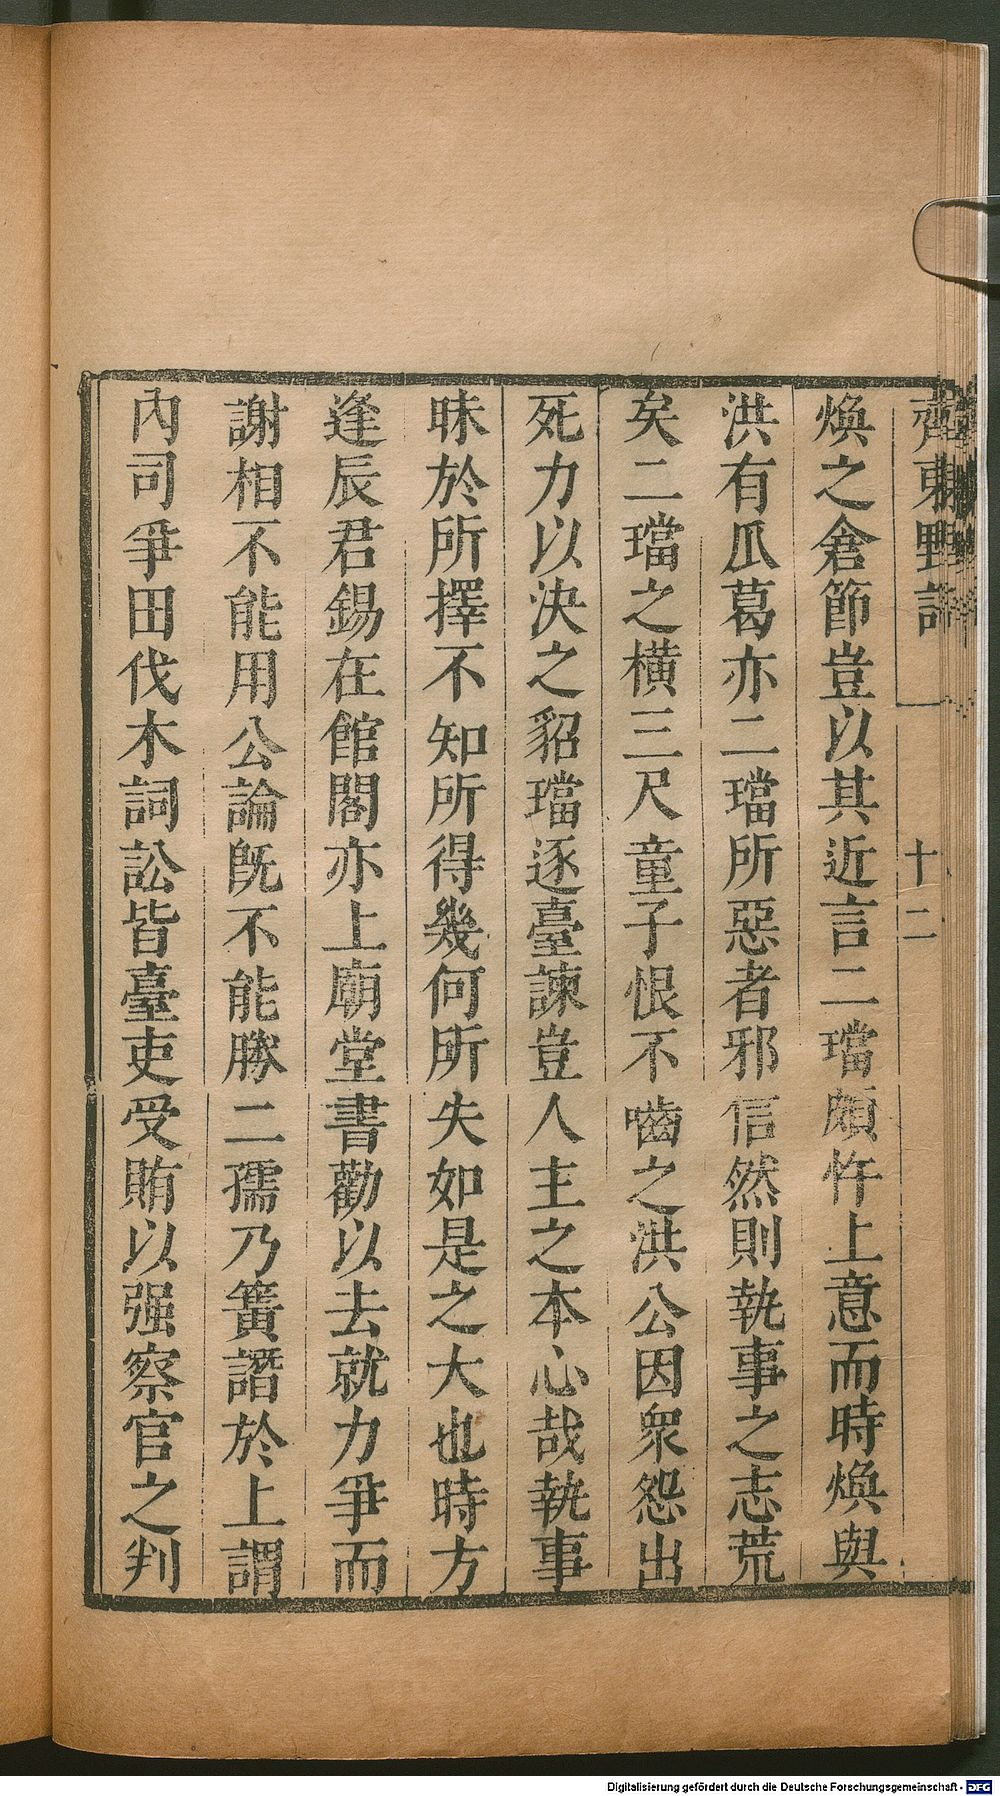 齊東野語 十二
煥之倉節豈以其近言二璫頗忤上意而時煥與
洪有瓜葛亦二璫所惡者邪信然則執事之志荒
矣二璫之橫三尺童子恨不嚙之洪公因衆怨出
死力以決之貂璫逐臺諫豈人主之本心哉執事
昧於所擇不知所得幾何所失如是之大也時方
逢辰君錫在館閣亦上廟堂書勸以去就力爭而
謝相不能用公論旣不能勝二孺乃簧譖於上謂
內司爭田伐木詞訟皆臺吏受賄以强察官之判
Digitalisierung gefördert durch die Deutsche Forschungsgemeinschaft - DFG